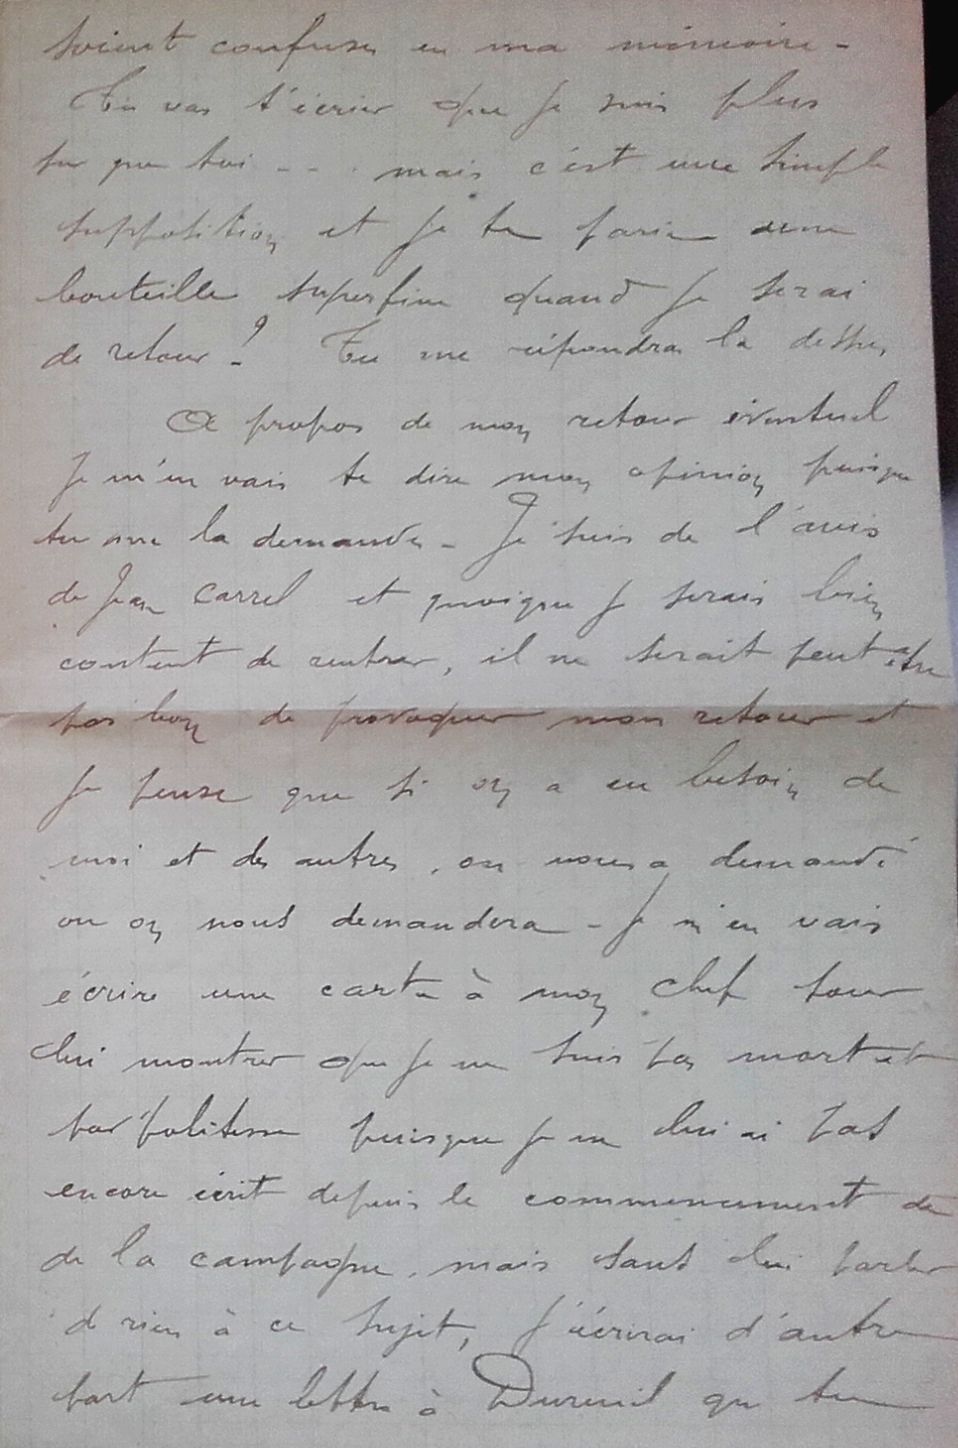 soient confuses en ma mémoire -
Tu vas t'écrier que je suis plus
sur que toi - - . mais c'est une simple
supposition et je te parie une
bouteille superfine quand je serai
de retour ! Tu me répondras la dessus,
A propos de mon retour éventuel
Je m'en vais te dire mon opinion puisque
tu me la demandes - Je suis de l'avis
de Jean Carrel et quoique je serais bien
content de rentrer, il ne serait peut être
pas bon de provoquer mon retour et
je pense que si on a eu besoin de
moi et des autres, on nous a demandé
ou on nous demandera - Je m'en vais
écrire une carte à mon chef pour
lui montrer que je ne suis pas mort et
par politesse puisque je ne lui ai pas
encore écrit depuis le commencement de
de la campagne, mais sans lui parler
d rien à ce sujet, j'écrirai d'autre
part une lettre à Dureuil que tu